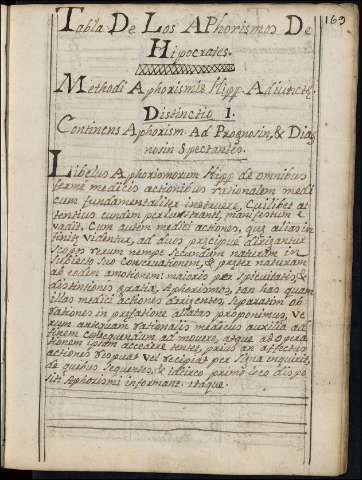 163
Tabla De Los APhorismos De
Hipocrates.
Methodi Aphorismis Hipp. Adiunctę.
Distinctio 1.
Continens Aphorism. Ad Prognosin, & Diag
nosin Spectantes.
Libelus Aphoriomorum Hipp de omnibus
fermè medicis actionibus rationalem medi
cum fundamentaliter instruere, Cuilibet at
tentius eundem perlustranti, manifestum e
vadit. Cum autem medici actiones, quę alias in
finitę videntur, ad duas pręcipuè dirigantur
scopos rerum nempe secundum naturam in
subiecto suo conservationem, & pręter naturam
ab eodem amotionem: maioris perspicuitatis, &
distintionis gratia, Aphorismos, tan has quam
illas medici actiones dirigentes, separatim ob
rationes in pręfatione allatas proponimus, Ve
rum antequam rationalis medicus auxilia ad
finem consequendum ad movere, atque ad opera
tionem ipsam accedere tentet, prius an affectus
actiones respuat vel recipiat per signa inquirit,
de quibus sequentes, & idcirco primo loco dispo
siti Aphorismi informant. itaque.